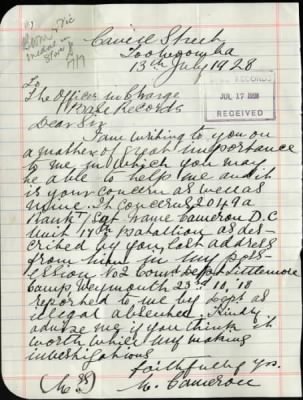 Street
Toowoomba
13th July 1928
RECORDS
JUL 17 1928
RECEIVED
To
The Officer in Charge
Base Records
Dear Sir
I am writing to you on
a matter of great importance
to me, in which you may
be able to help me and it
is your concern as well as
mine. It concerns 2049a
Rank T/Sgt name Cameron D. C
Unit Battalion as des-
cribed by you, last address
from him in my pos-
ession No 2 Comd Dept Littlemore
Camp, Weymouth 23rd. 10. 18
reported to me by Dept as
illegal absentee. Kindly
advise me if you think it
worth while my making
investigations
Faithfully yrs.
M. Cameron